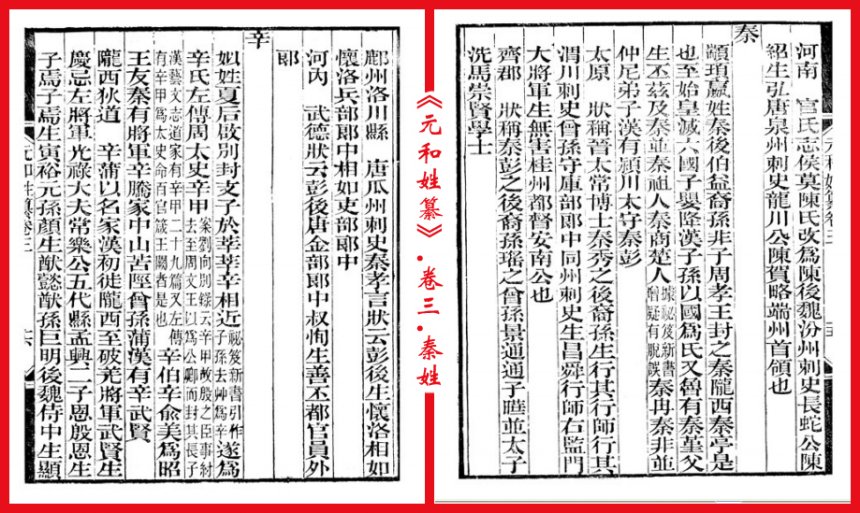 河南　官氏志侯莫陳氏改為陳後魏汾州刺史長蛇公陳
紹生弘唐泉州刺史龍川公陳賀略端州首領也
秦
顓頊嬴姓秦後伯益裔孫非子周孝王封之秦隴西秦亭是
也至始皇滅六國子嬰降漢子孫以國為氏又魯有秦堇父
生丕茲及秦並秦祖人秦商楚人據祕笈新書增疑有脫誤秦冉秦非並
仲尼弟子漢有潁川太守秦彭
太原　狀稱晉太常博士秦秀之後裔孫生行其行師行其
渭川刺史曾孫守庫部郎中同州刺史生昌舜行師右監門
大將軍生無害桂州都督安南公也
齊郡　狀稱秦彭之後裔孫瑤之曾孫景通通子暐並太子
洗馬崇賢學士
《元和姓纂》·卷三·秦姓
鄜州洛川縣　唐瓜州刺史秦孝言狀云彭後生懷洛相如
懷洛兵部郎中相如吏部郎中
河內　武德狀云彭後唐金部郎中叔恂生善丕都官員外
郎
辛
姒姓夏后啟別封支子於莘莘辛相近祕笈新書引作子孫去艸為辛遂為
辛氏左傳周太史辛甲案劉向別錄云辛甲故殷之臣事紂去至周文王以為公卿而封其長子
漢藝文志道家有辛甲二十九篇又左傳有辛甲為太史命百官箴王闕者是也辛伯辛俞美為昭
王友秦有將軍辛騰家中山苦陘曾孫蒲漢有辛武賢
隴西狄道　辛蒲以名家漢初徙隴西至破羌將軍武賢生
慶忌左將軍光祿大夫常樂公五代縣孟興二子恩殷恩生
子焉子焉生寅裕元孫顏生猷懿猷孫巨明後魏侍中生顯
元和姓纂卷三
六